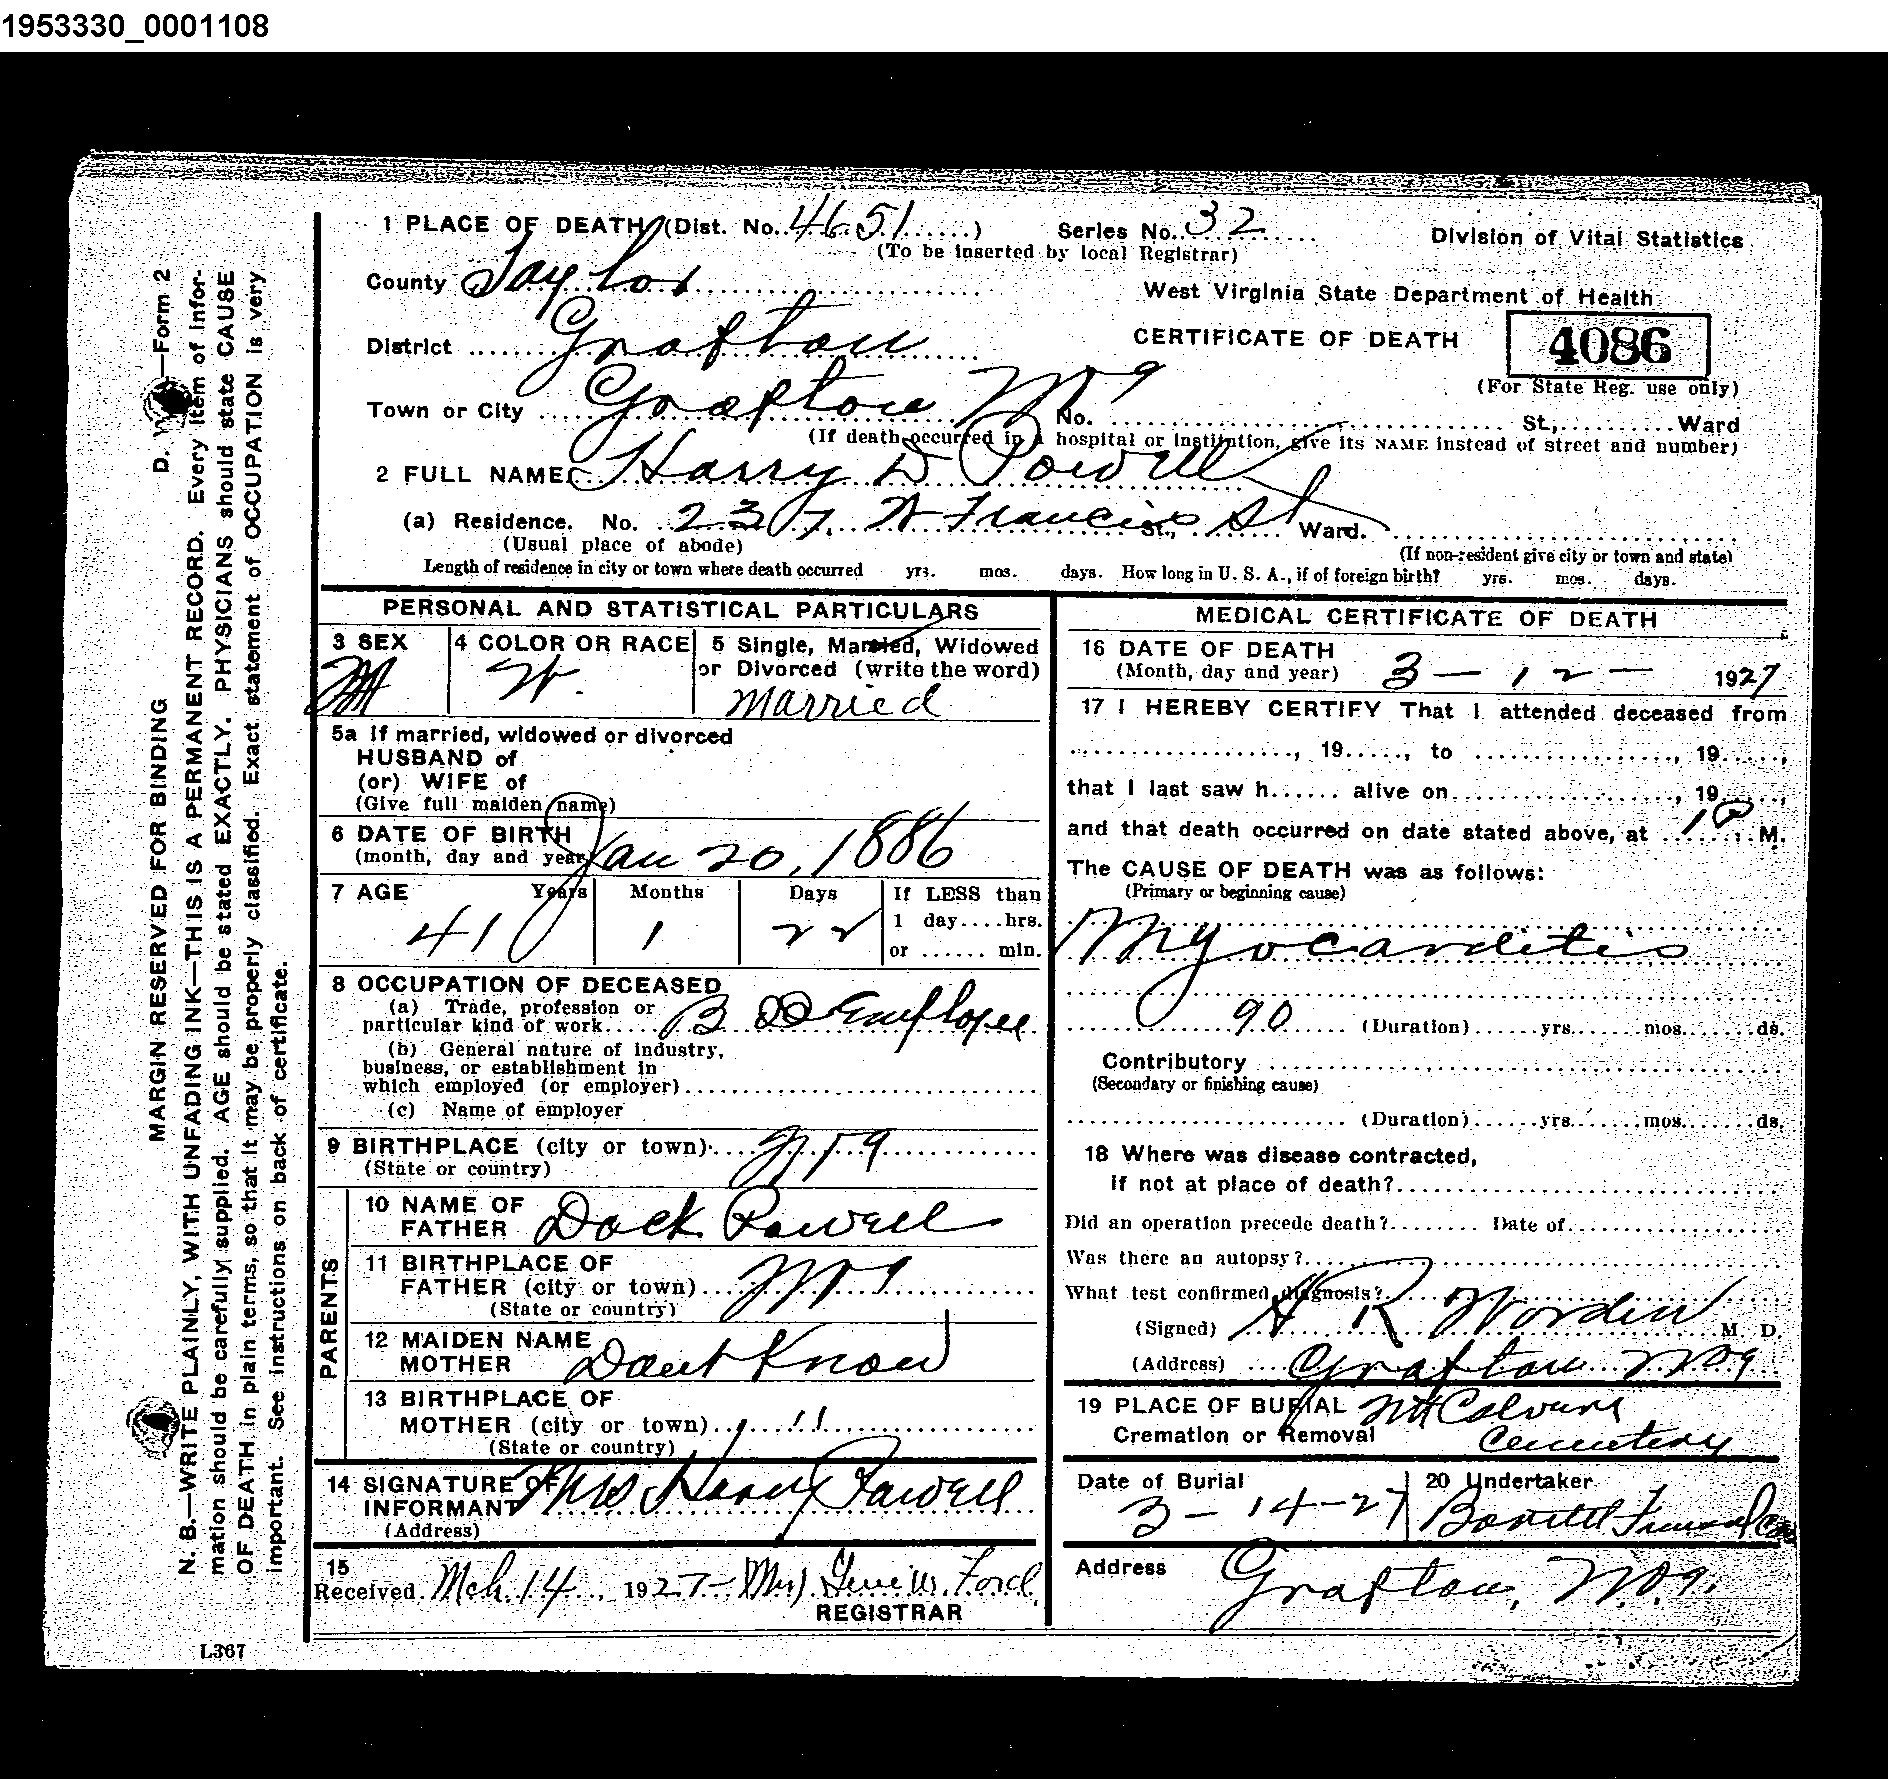 1953330_0001108
1 PLACE OF DEATH (Dist. No. 4651 ) Series No. 32
(To be inserted by local Registrar)
Division of Vital Statistics
County Taylor
West Virginia State Department of Health
District Grafton
CERTIFICATE OF DEATH 4086
(For State Reg. use only)
Town or City Grafton No. St., Ward
(If death occurred in a hospital or institution, give its NAME instead of street and number)
2 FULL NAME Harry D Powell
(a) Residence. No. 237 W Francis St St., Ward.
(Usual place of abode) (If non-resident give city or town and state)
Length of residence in city or town where death occurred yrs. mos. days. How long in U. S. A., if of foreign birth? yrs. mos. days.
PERSONAL AND STATISTICAL PARTICULARS
3 SEX 4 COLOR OR RACE 5 Single, Married, Widowed
or Divorced (write the word)
M W. Married
5a If married, widowed or divorced
HUSBAND of
(or) WIFE of
(Give full maiden name)
6 DATE OF BIRTH
(month, day and year) Jan 20, 1886
7 AGE Years Months Days If LESS than
1 day....hrs.
or ...... min.
41 1 22
8 OCCUPATION OF DECEASED
(a) Trade, profession or
particular kind of work B & O Employee
(b) General nature of industry,
business, or establishment in
which employed (or employer)
(c) Name of employer
9 BIRTHPLACE (city or town) W Va
(State or country)
PARENTS
10 NAME OF
FATHER Dock Powell
11 BIRTHPLACE OF
FATHER (city or town) W Va
(State or country)
12 MAIDEN NAME
MOTHER Dont Know
13 BIRTHPLACE OF
MOTHER (city or town) " "
(State or country)
14 SIGNATURE OF
INFORMANT Mrs Harry Powell
(Address)
15
Received Mch. 14 1927 (Mrs) Ford
REGISTRAR
MEDICAL CERTIFICATE OF DEATH
16 DATE OF DEATH
(Month, day and year) 3 - 12 - 1927
17 I HEREBY CERTIFY That I attended deceased from
, 19......, to , 19......,
that I last saw h...... alive on , 19......,
and that death occurred on date stated above, at 1 P. M.
The CAUSE OF DEATH was as follows:
(Primary or beginning cause)
Myocarditis
90 (Duration)......yrs.......mos.......ds.
Contributory
(Secondary or finishing cause)
(Duration)......yrs.......mos.......ds.
18 Where was disease contracted,
if not at place of death?
Did an operation precede death? Date of
Was there an autopsy?
What test confirmed diagnosis?
(Signed) A R Worden M D.
(Address) Grafton W Va
19 PLACE OF BURIAL Mt Calvary
Cremation or Removal Cemetery
Date of Burial 20 Undertaker
3 - 14 - 27 Funeral Co
Address Grafton, W. Va.
MARGIN RESERVED FOR BINDING
N. B.—WRITE PLAINLY, WITH UNFADING INK—THIS IS A PERMANENT RECORD. Every item of infor-
mation should be carefully supplied. AGE should be stated EXACTLY. PHYSICIANS should state CAUSE
OF DEATH in plain terms, so that it may be properly classified. Exact statement of OCCUPATION is very
important. See instructions on back of certificate.
—Form 2
L367